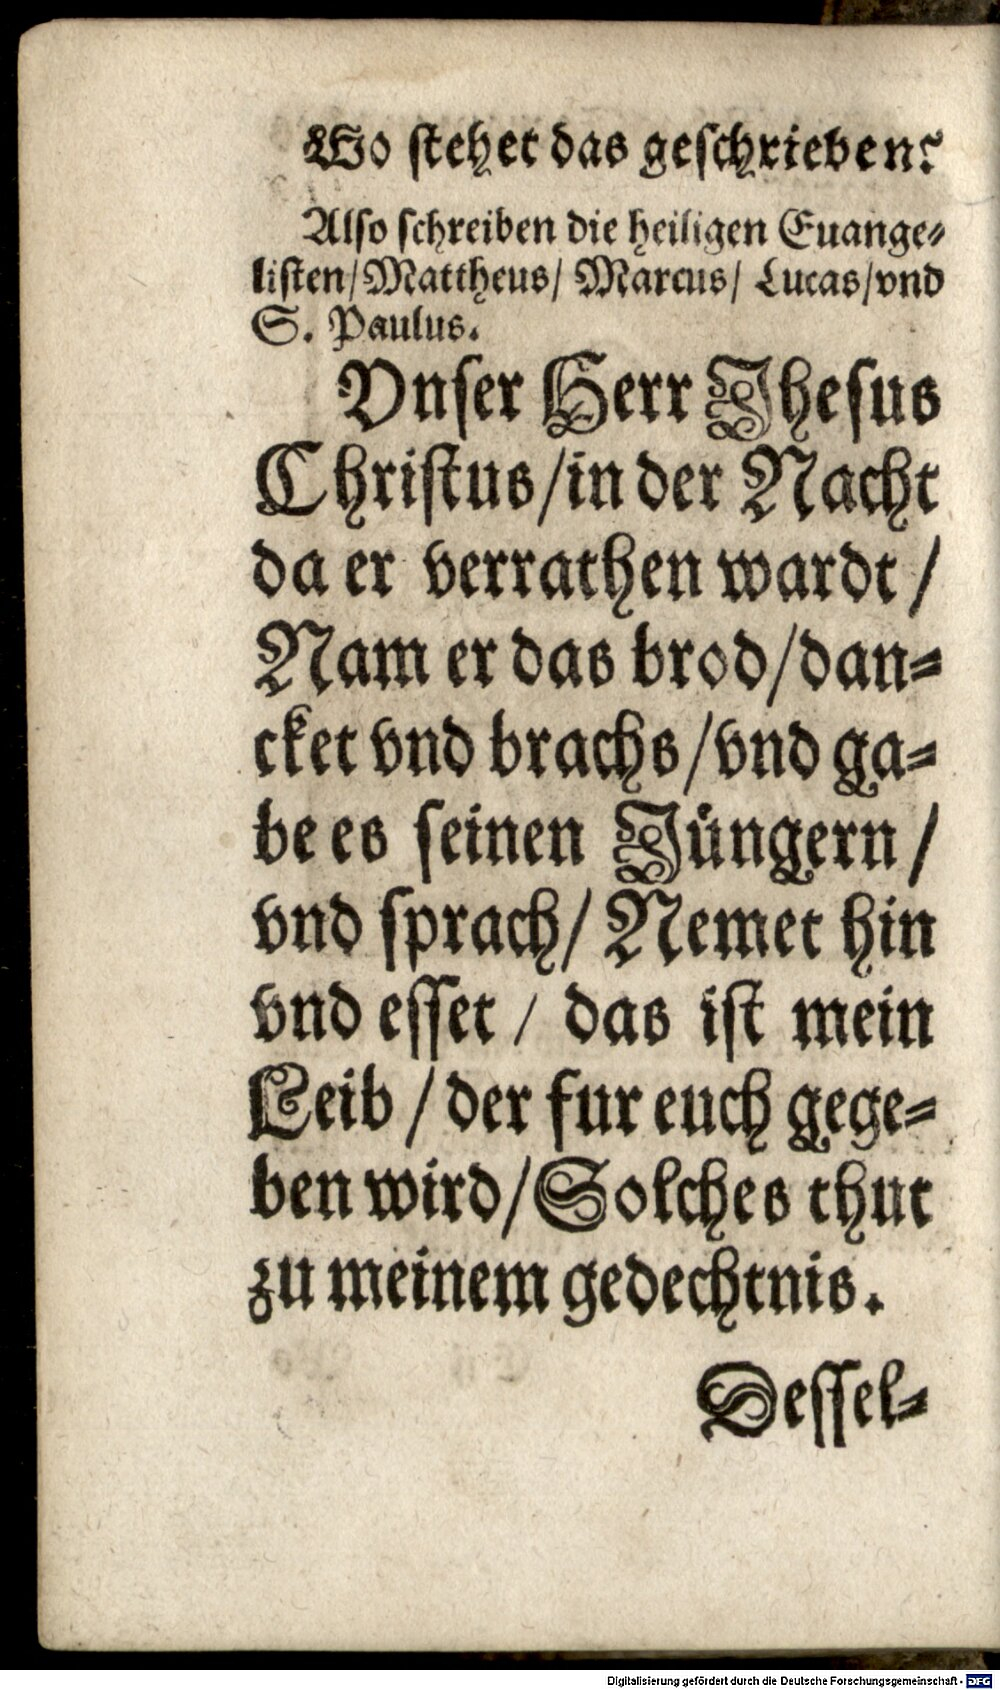 Wo stehet das geschrieben?
Also schreiben die heiligen Euange-
listen/Mattheus/ Marcus/ Lucas/vnd
S. Paulus.
Vnser Herr Jhesus
Christus/in der Nacht
da er verrathen wardt/
Nam er das brod/dan-
cket vnd brachs/vnd ga-
be es seinen Jüngern/
vnd sprach/ Nemet hin
vnd esset/ das ist mein
Leib/der fur euch gege-
ben wird/Solches thut
zu meinem gedechtnis.
Dessel-
Digitalisierung gefördert durch die Deutsche Forschungsgemeinschaft - DFG